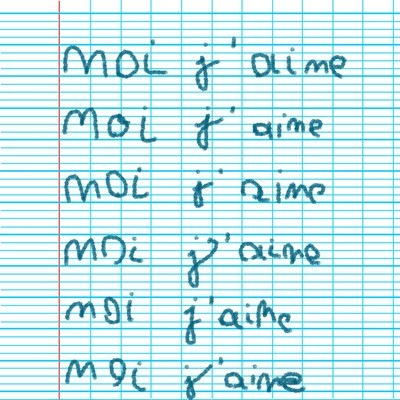 MOi j'aime
MOi j'aime
MOi j'aime
MOi j'aime
MOi j'aime
MOi j'aime